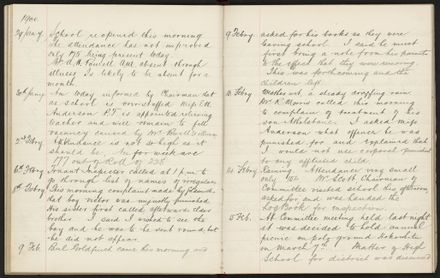 1900.
29 Jany. School reopened this morning
the attendance has not improved
only 175 being present today.
Mr. A. A. Powell Asst. absent through
illness. Is likely to be absent for a
month.
30th Jany. Am today informed by Chairman that
as school is understaffed Miss E. M.
Anderson P.T. is appointed relieving
teacher and will remain to fill
vacancy caused by Mr. Powell's illness
2nd Feby. Attendance is not so high as it
should be. Av. for week are
177 out of Roll of 228
6th Feby. Truant Inspector called at 1 p.m. &
go through list of names of irregulars
8th Feby. This morning complaint made by
that boy Victor was unjustly punished.
His sister first called afterwards elder
brother. I said I wished to see the
boy and he was to be sent round, but
he did not appear.
9 Feb. Paul Goldfinch came this morning and
9 Feby. asked for his books as they were
leaving school. I said he must
first bring a note from his parents
to the effect that they were removing.
This was forthcoming and the
children left.
13 Feby. Weather wet, a steady drizzling rain.
Mr. R. Norris called this morning
to complain of treatment of his
son Athelstane. I asked Miss
Anderson what offence he was
punished for and explained that
I would not use corporal punishment
to any afflicted child.
14 Feby. Raining. Attendance very small
only 152. Mr. Chairman of
Committee visited school this afternoon
asked for and was handed the
Log Book for inspection.
15 Feb. At Committee meeting held last night
it was decided to hold annual
picnic on polo ground
on March 7th Matter of High
School for district was discussed